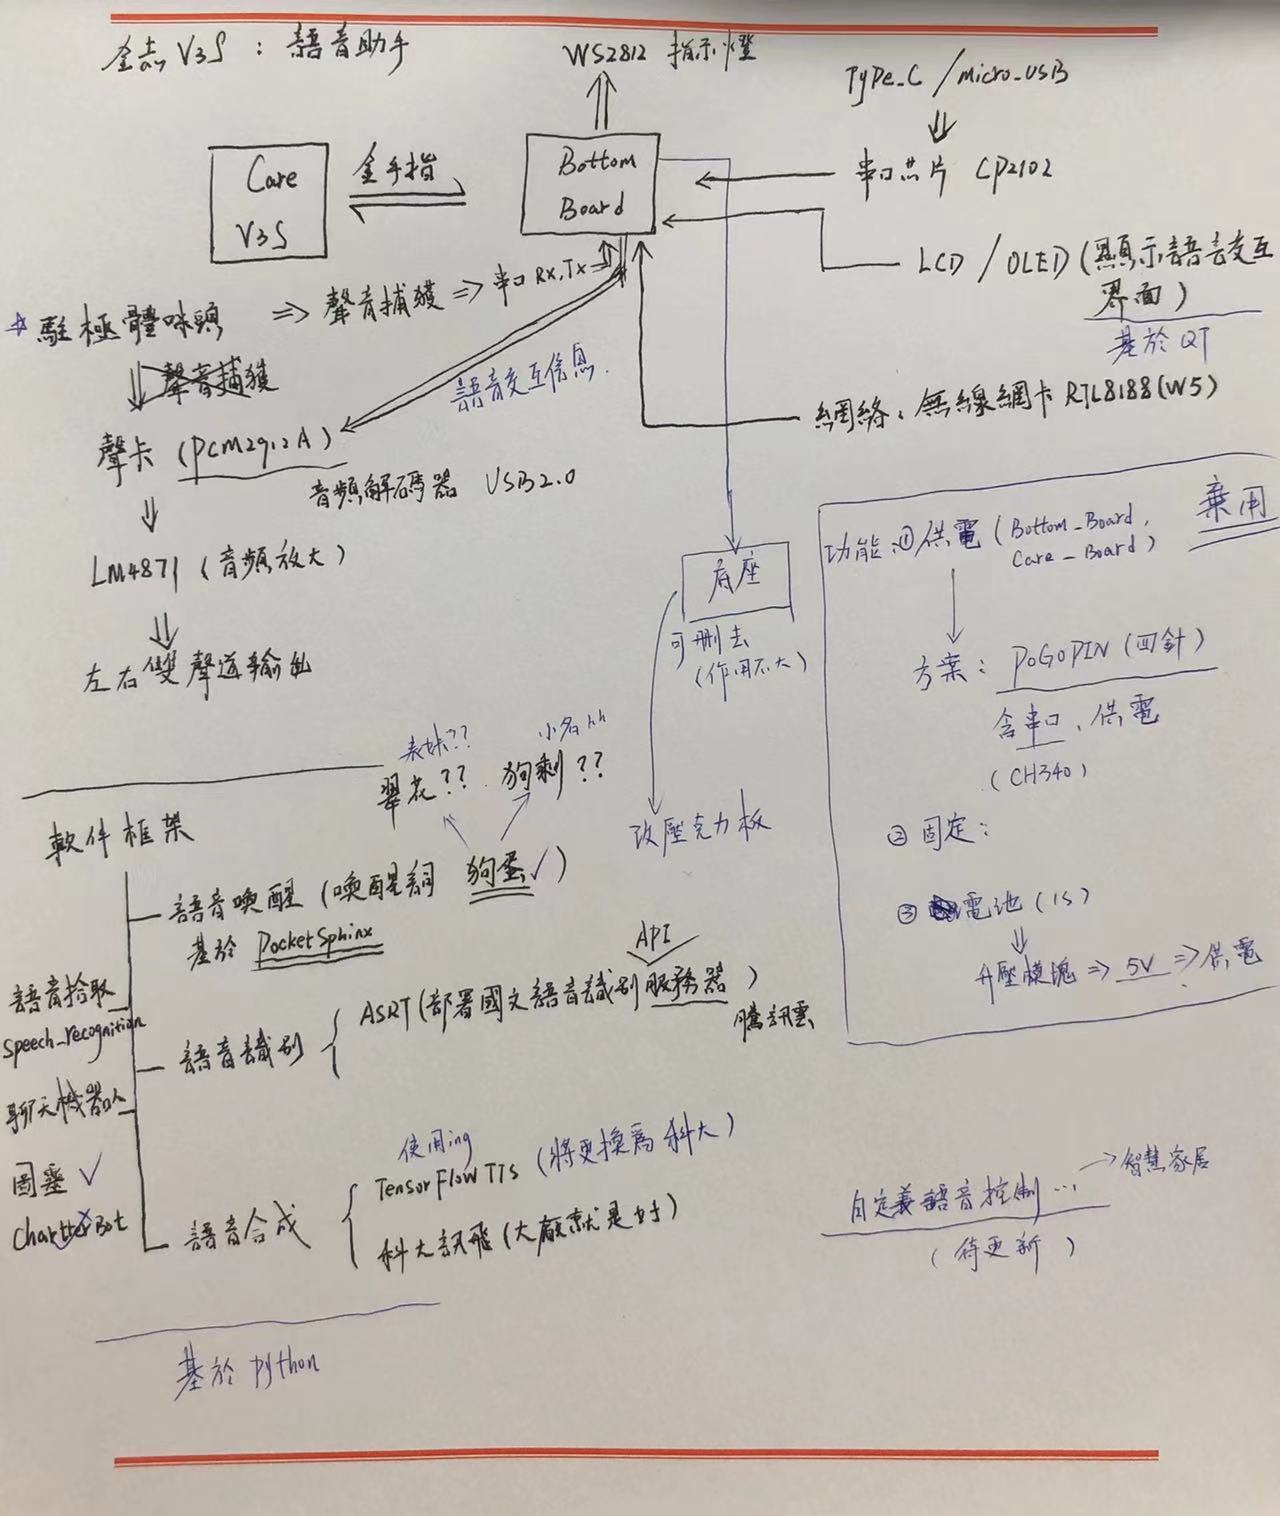 全志 V3S : 語音助手
WS2812 指示燈
TYPE_C / micro_USB
串口芯片 CP2102
Care
V3S
金手指
Bottom
Board
LCD / OLED (顯示語音交互
界面)
基於 QT
駐極體咪頭 ⇒ 聲音捕獲 ⇒ 串口 RX,TX ⇒
聲音捕獲
語音交互信息
網絡: 無線網卡 RTL8188 (W5)
聲卡 (PCM2912A)
音頻解碼器 USB2.0
LM4871 (音頻放大)
左右雙聲道輸出
底座
可刪去
(作用不大)
改壓克力板
棄用
功能: ① 供電 (Bottom_Board,
Care_Board)
方案: POGOPIN (四針)
含串口、供電
(CH340)
② 固定:
③ 電池 (1S)
升壓模塊 ⇒ 5V ⇒ 供電
表妹?? 小名hh
翠花?? 狗剩??
軟件框架
語音喚醒 (喚醒詞 狗蛋✓)
基於 PocketSphinx
語音拾取
Speech_recognition
API
語音識別
ASRT (部署國文語音識別服務器)
騰訊雲
聊天機器人
圖靈 ✓
ChartterBot
語音合成
使用ing
TensorFlowTTS (將更換爲科大)
科大訊飛 (大廠就是好)
自定義語音控制… → 智慧家居
(待更新)
基於 Python